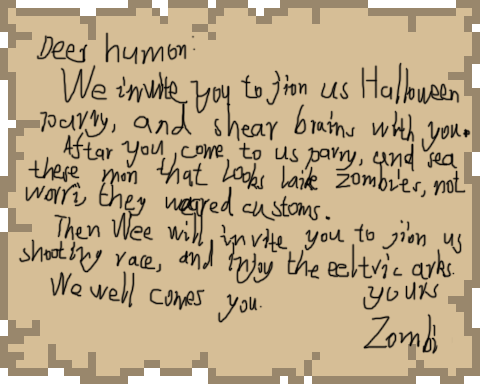 Deer humon:
We invite you to jion us Halloween
parry, and shear brains with you.
Aftar you come to us parry, and sea
these mon that looks laik zombies, not
worri they wared customs.
Then Wee will invite you to jion us
shooting race, and injoy the eeltric arks.
We well comes you.
yours
Zombi